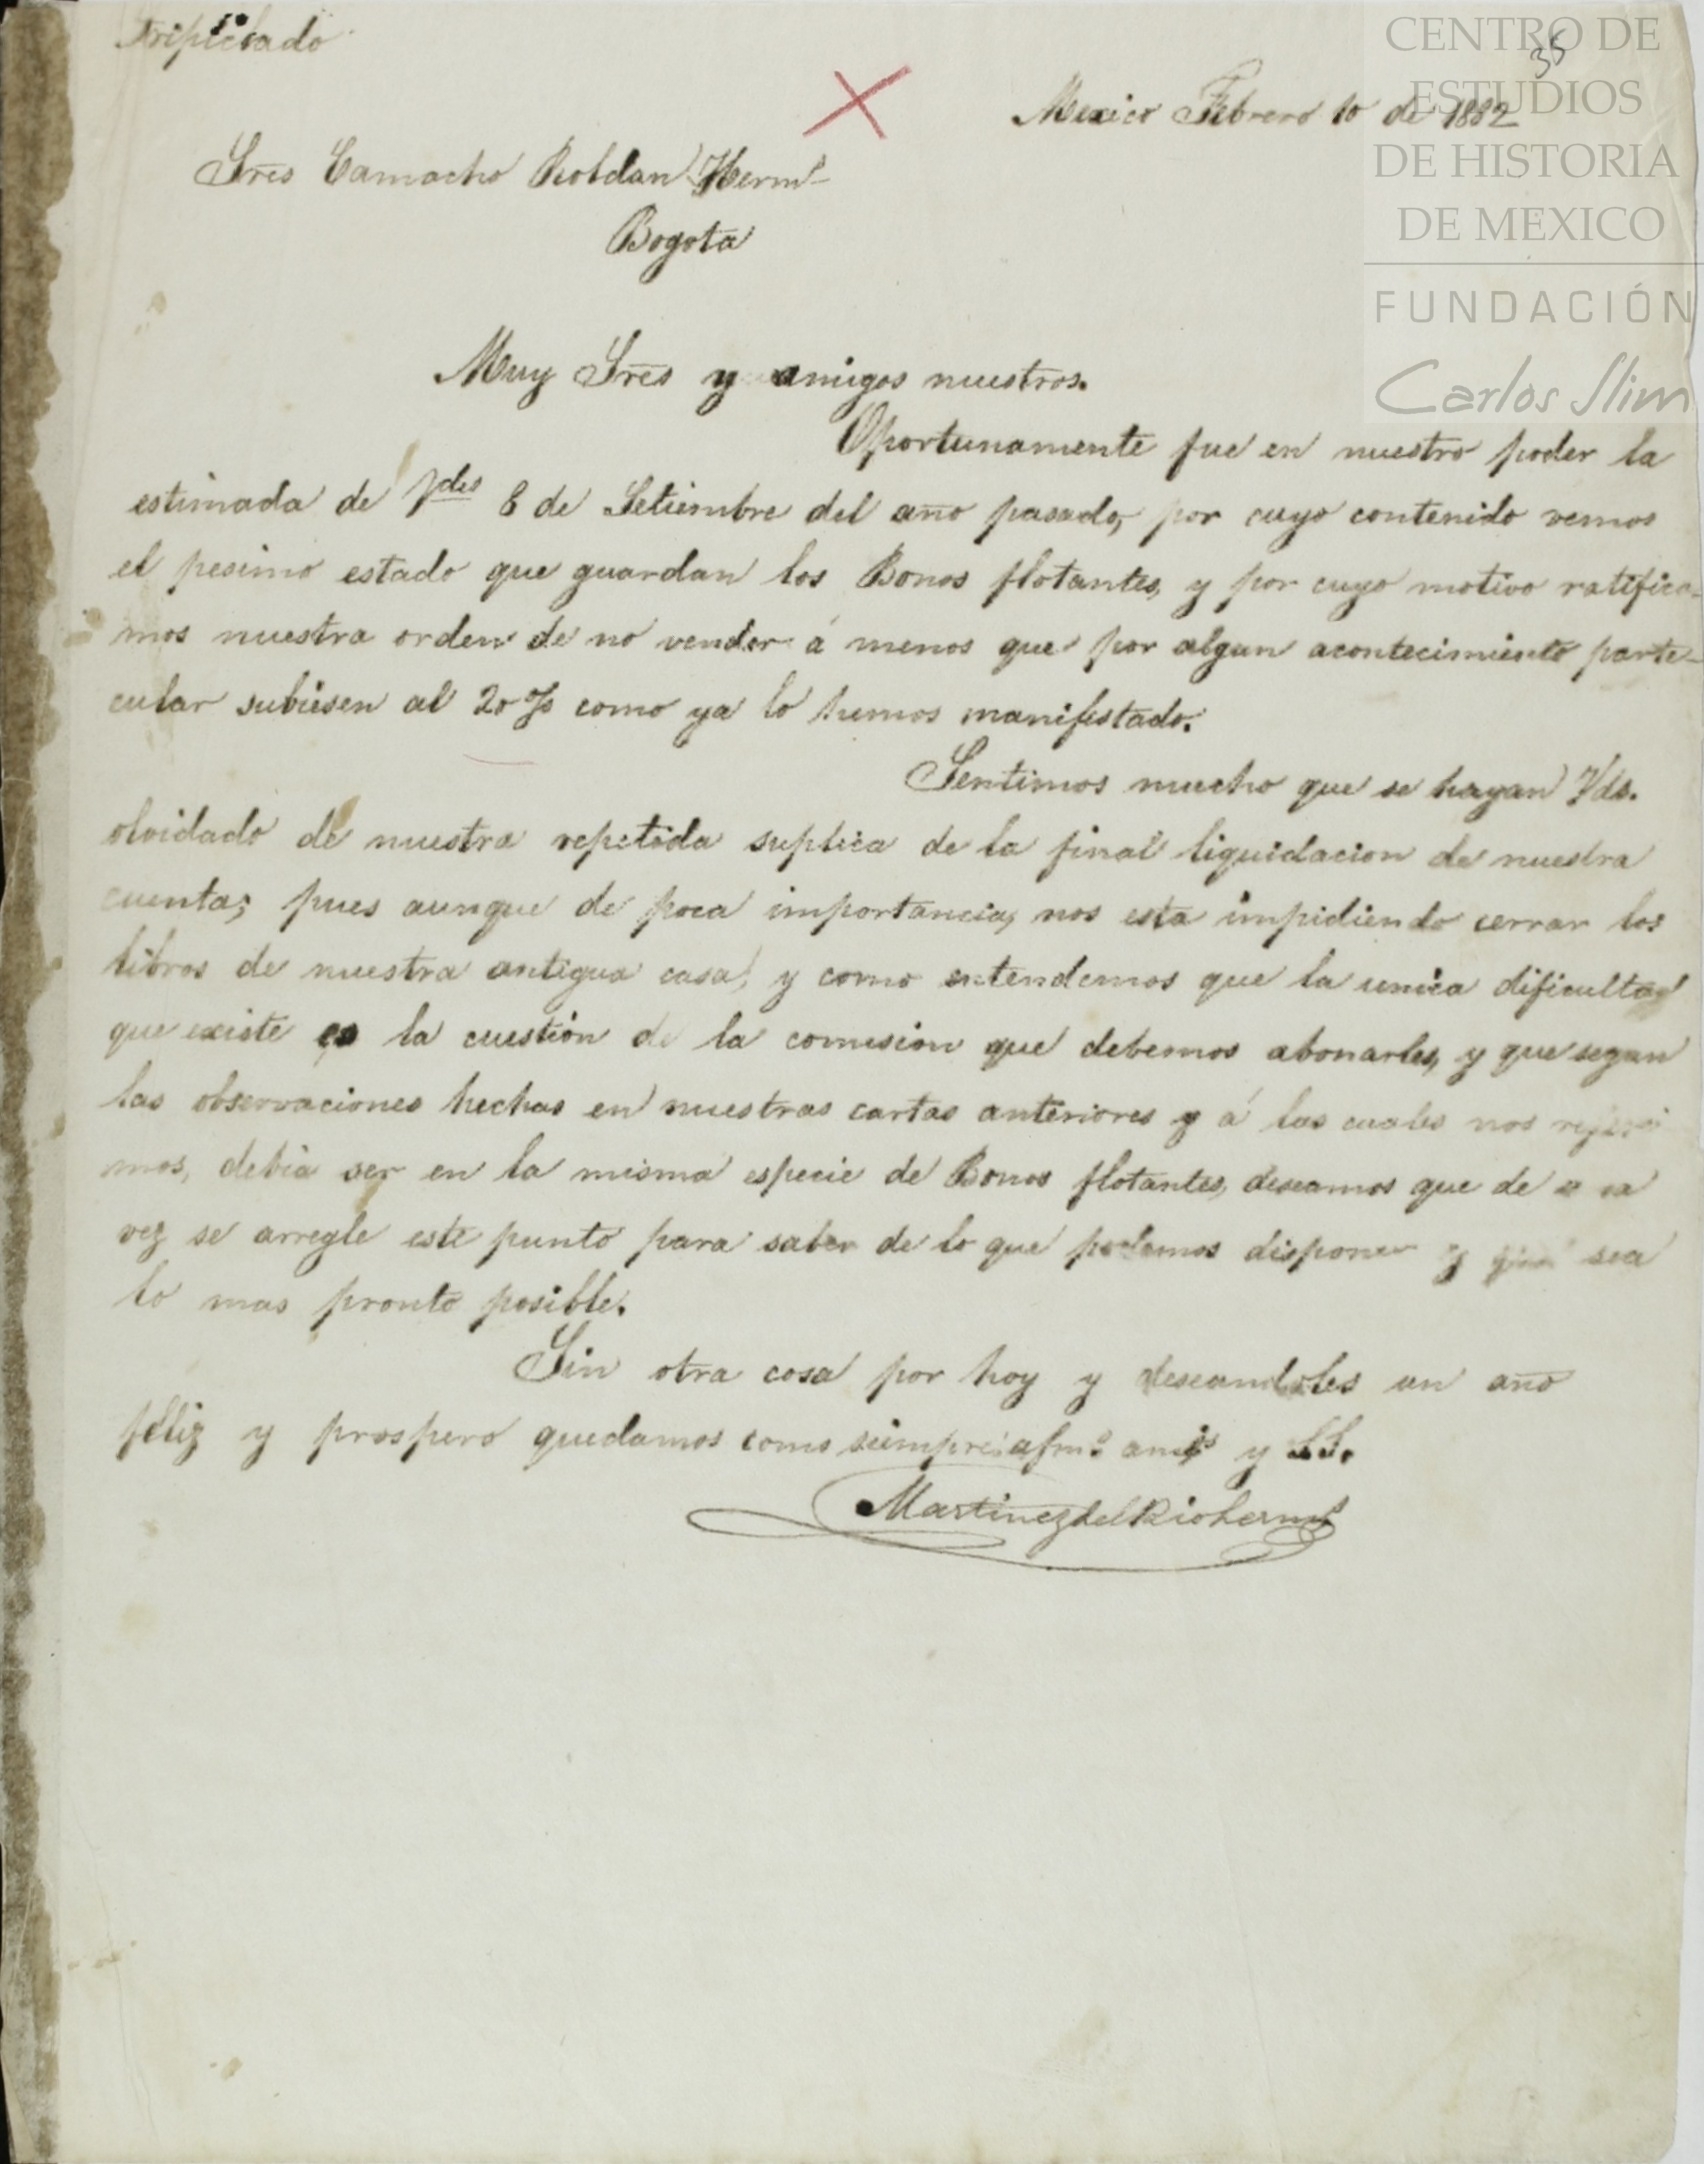 Triplicado
35
Mexico Febrero 10 de 1882
Sres Camacho Roldan Herms
Bogota
Muy Sres y amigos nuestros.
Oportunamente fue en nuestro poder la
estimada de Vdes 8 de Setiembre del año pasado, por cuyo contenido vemos
el pesimo estado que guardan los Bonos flotantes, y por cuyo motivo ratifica-
mos nuestra orden de no vender á menos que por algun acontecimiento parti-
cular subiesen al 20% como ya lo hemos manifestado.
Sentimos mucho que se hayan Vds.
olvidado de nuestra repetida suplica de la final liquidacion de nuestra
cuenta; pues aunque de poca importancia, nos esta impidiendo cerrar los
libros de nuestra antigua casa, y como entendemos que la unica dificultad
que existe es la cuestión de la comision que debemos abonarles, y que segun
las observaciones hechas en nuestras cartas anteriores y á las cuales nos referi
mos, debia ser en la misma especie de Bonos flotantes, deseamos que de
vez se arregle este punto para saber de lo que podemos disponer y que sea
lo mas pronto posible.
Sin otra cosa por hoy y deseandoles un año
feliz y prospero quedamos como siempre afmos amigs y SS.
Martinez del Rio herms
CENTRO DE
ESTUDIOS
DE HISTORIA
DE MEXICO
FUNDACIÓN
Carlos Slim